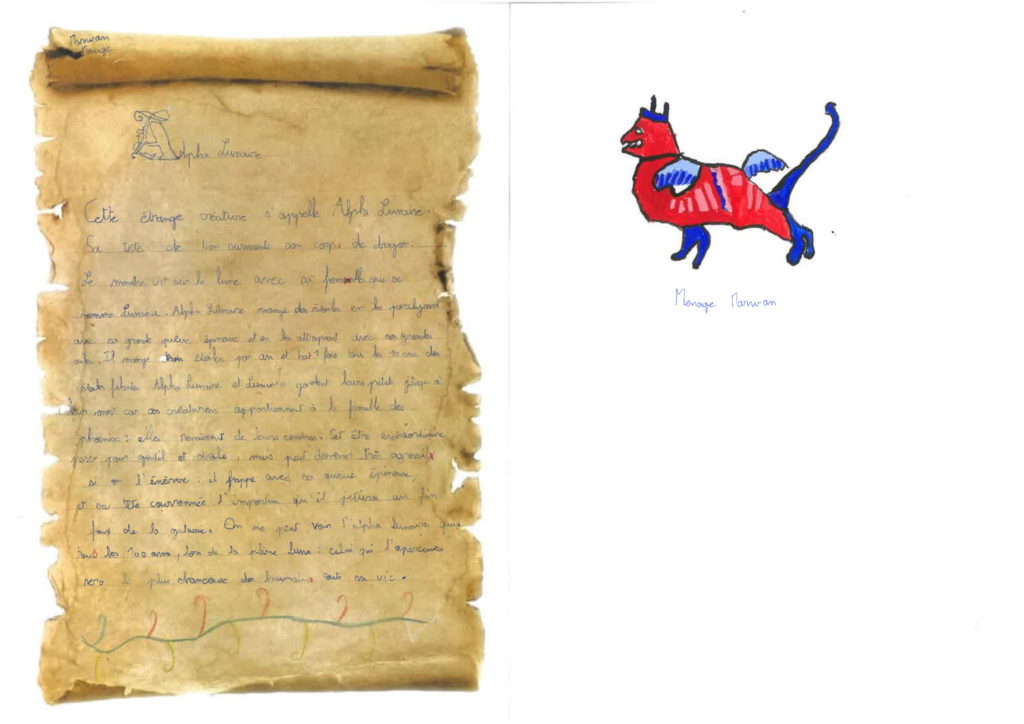 Marwan
Menage
Alpha Lunaire
Cette étrange créature s'appelle Alpha Lunaire.
Sa tête de lion surmonte son corps de dragon.
Le monstre vit sur la lune avec sa femelle qui se
nomme Lunaria. Alpha Lunaire mange des étoiles en les paralysant
avec sa grande queue épineuse et en les attrapant avec ses grandes
ailes. Il mange trois étoiles par an et fait 1 fois tous les 10 ans des
étoiles filantes. Alpha Lunaire et Lunaria gardent leurs petits jusqu'à
leur mort car ces créatures appartiennent à la famille des
phoenix : elles renaissent de leurs cendres. Cet être extraordinaire
passe pour gentil et drôle, mais peut devenir très agressif
si on l'énerve : il frappe avec sa queue épineuse,
et sa tête couronnée l'importun qu'il jettera au fin
fond de la galaxie. On ne peut voir l'alpha lunaire que
tous les 100 ans, lors de la pleine lune : celui qui l'apercevra
sera le plus chanceux des humains toute sa vie.
Menage Marwan